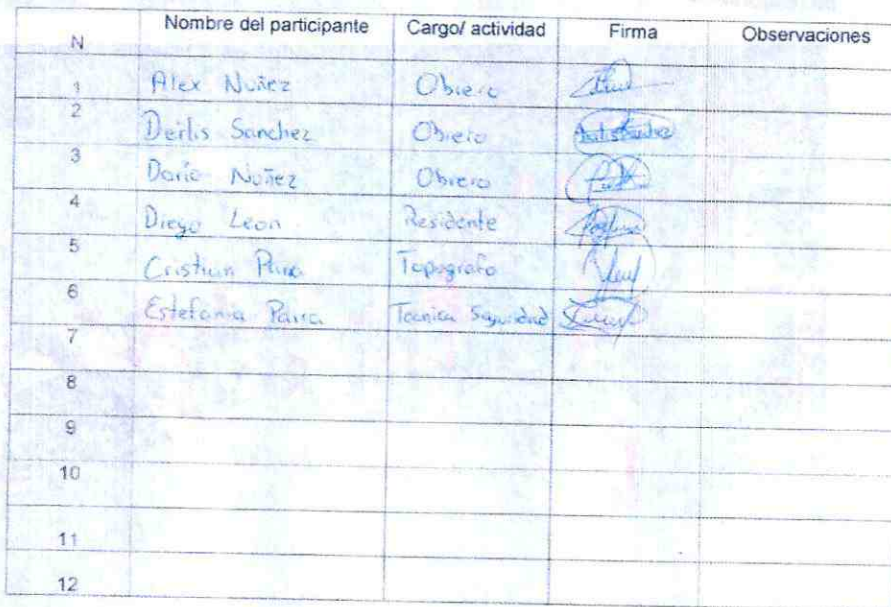 N Nombre del participante Cargo/ actividad Firma Observaciones
1 Alex Nuñez Obrero
2 Deilis Sanchez Obrero
3 Dario Nuñez Obrero
4 Diego Leon Residente
5 Cristian Parra Topografo
6 Estefania Parra Tecnica Seguridad
7
8
9
10
11
12